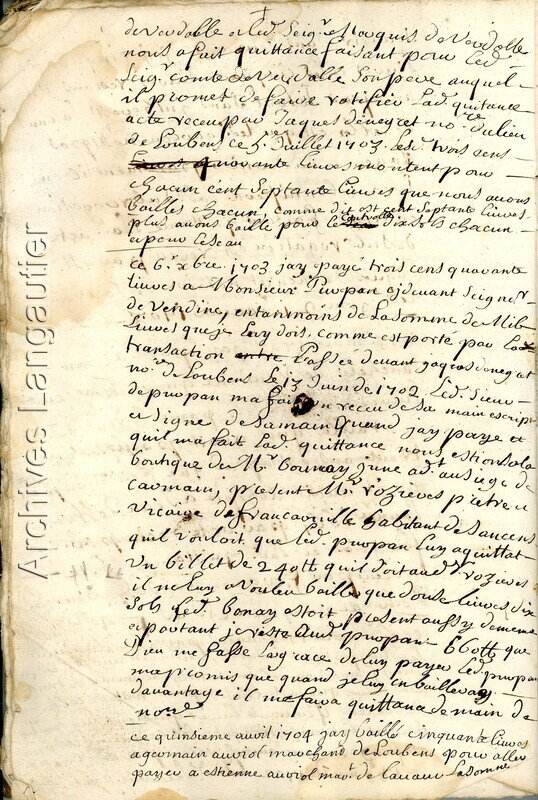 deverdalle et led. Seigr. Marquis de Verdalle
nous a fait quittance faisant pour led.
Seigr. comte de Verdalle son pere auquel
il promet de faire ratifier lad. quitance
acte receu par Jaques denegret nore. du lieu
de Loubens ce 5e. Juillet 1703. lesd. trois sens
quarante livres montent pour
chacun cent septante livres que nous avons
bailles chacun, comme dit est cent septante livres
plus avons baillé pour le controlle dix sols chacun
et pour le seau
ce 6e. xbre 1703 jay payé trois cens quarante
livres a Monsieur Puopan ajdevant seigner.
de Vendine, entanmoins de la somme de Mil
livres que je luy dois, comme est porté par lad.
transaction entre passée devant jaques denegret
nore. de Loubens le 13 Juin de 1702. led. sieur
de puopan ma fait un receu de sa main escript
et signé de sa main quand jay payé et
quil ma fait lad. quittance nous estions a la
boutique de Mr. bonnay june adt. au siege de
caraman, present Mr. rozieres patre et
vicaire de francarville habitant de
quil vouloit que led. puopan luy aquittat
un billet de 240tt quil doit aud. rozieres
il ne luy a vouleu bailler que douse livres dix
sols led. bonay estoit present aussy de meme
et partant je reste aud. puopan 660tt que
Dieu me fasse la grace de luy payer led. puopan
ma promis que quand je luy en bailleray
davantage il me faira quittance de main de
nore.
ce quinsieme avril 1704 jay baillé cinquante livres
a germain auriol marchand de Loubens pour aller
payer a estienne auriol mart. de lavaur la somme
Archives Langautier